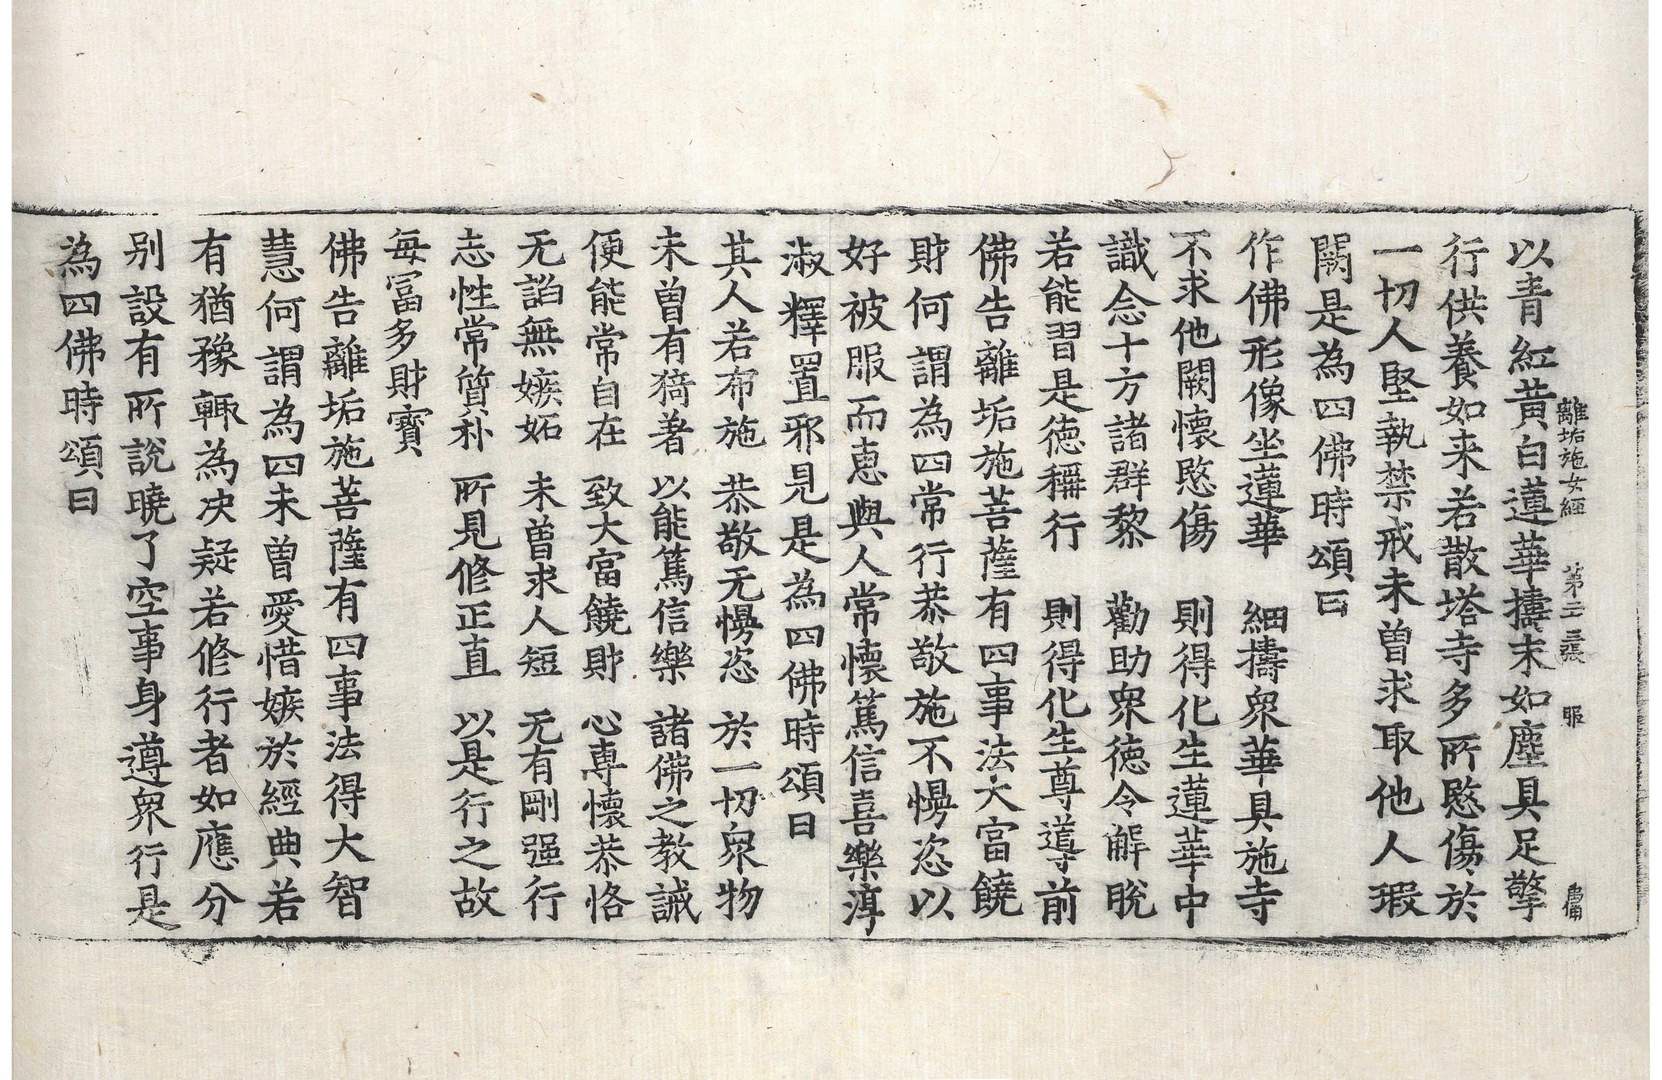 離垢施女經 第二十三張 服
以青紅黃白蓮華擣末如塵具足擎
行供養如来若散塔寺多所愍傷於
一切人堅執禁戒未曽求取他人瑕
闕是為四佛時頌曰
作佛形像坐蓮華 細擣衆華具施寺
不求他闕懷愍傷 則得化生蓮華中
識念十方諸群黎 勸助衆徳令解脫
若能習是徳稱行 則得化生尊導前
佛告離垢施菩薩有四事法大富饒
財何謂為四常行恭敬施不慢恣以
好被服而恵與人常懷篤信喜樂淳
淑釋置邪見是為四佛時頌曰
其人若布施 恭敬无慢恣 於一切衆物
未曽有猗著 以能篤信樂 諸佛之教誡
便能常自在 致大富饒財 心専懷恭恪
无諂無嫉妬 未曽求人短 无有剛强行
志性常質朴 所見修正直 以是行之故
每冨多財寳
佛告離垢施菩薩有四事法得大智
慧何謂為四未曽愛惜嫉於經典若
有猶豫輙為决疑若修行者如應分
别設有所說曉了空事身遵衆行是
為四佛時頌曰